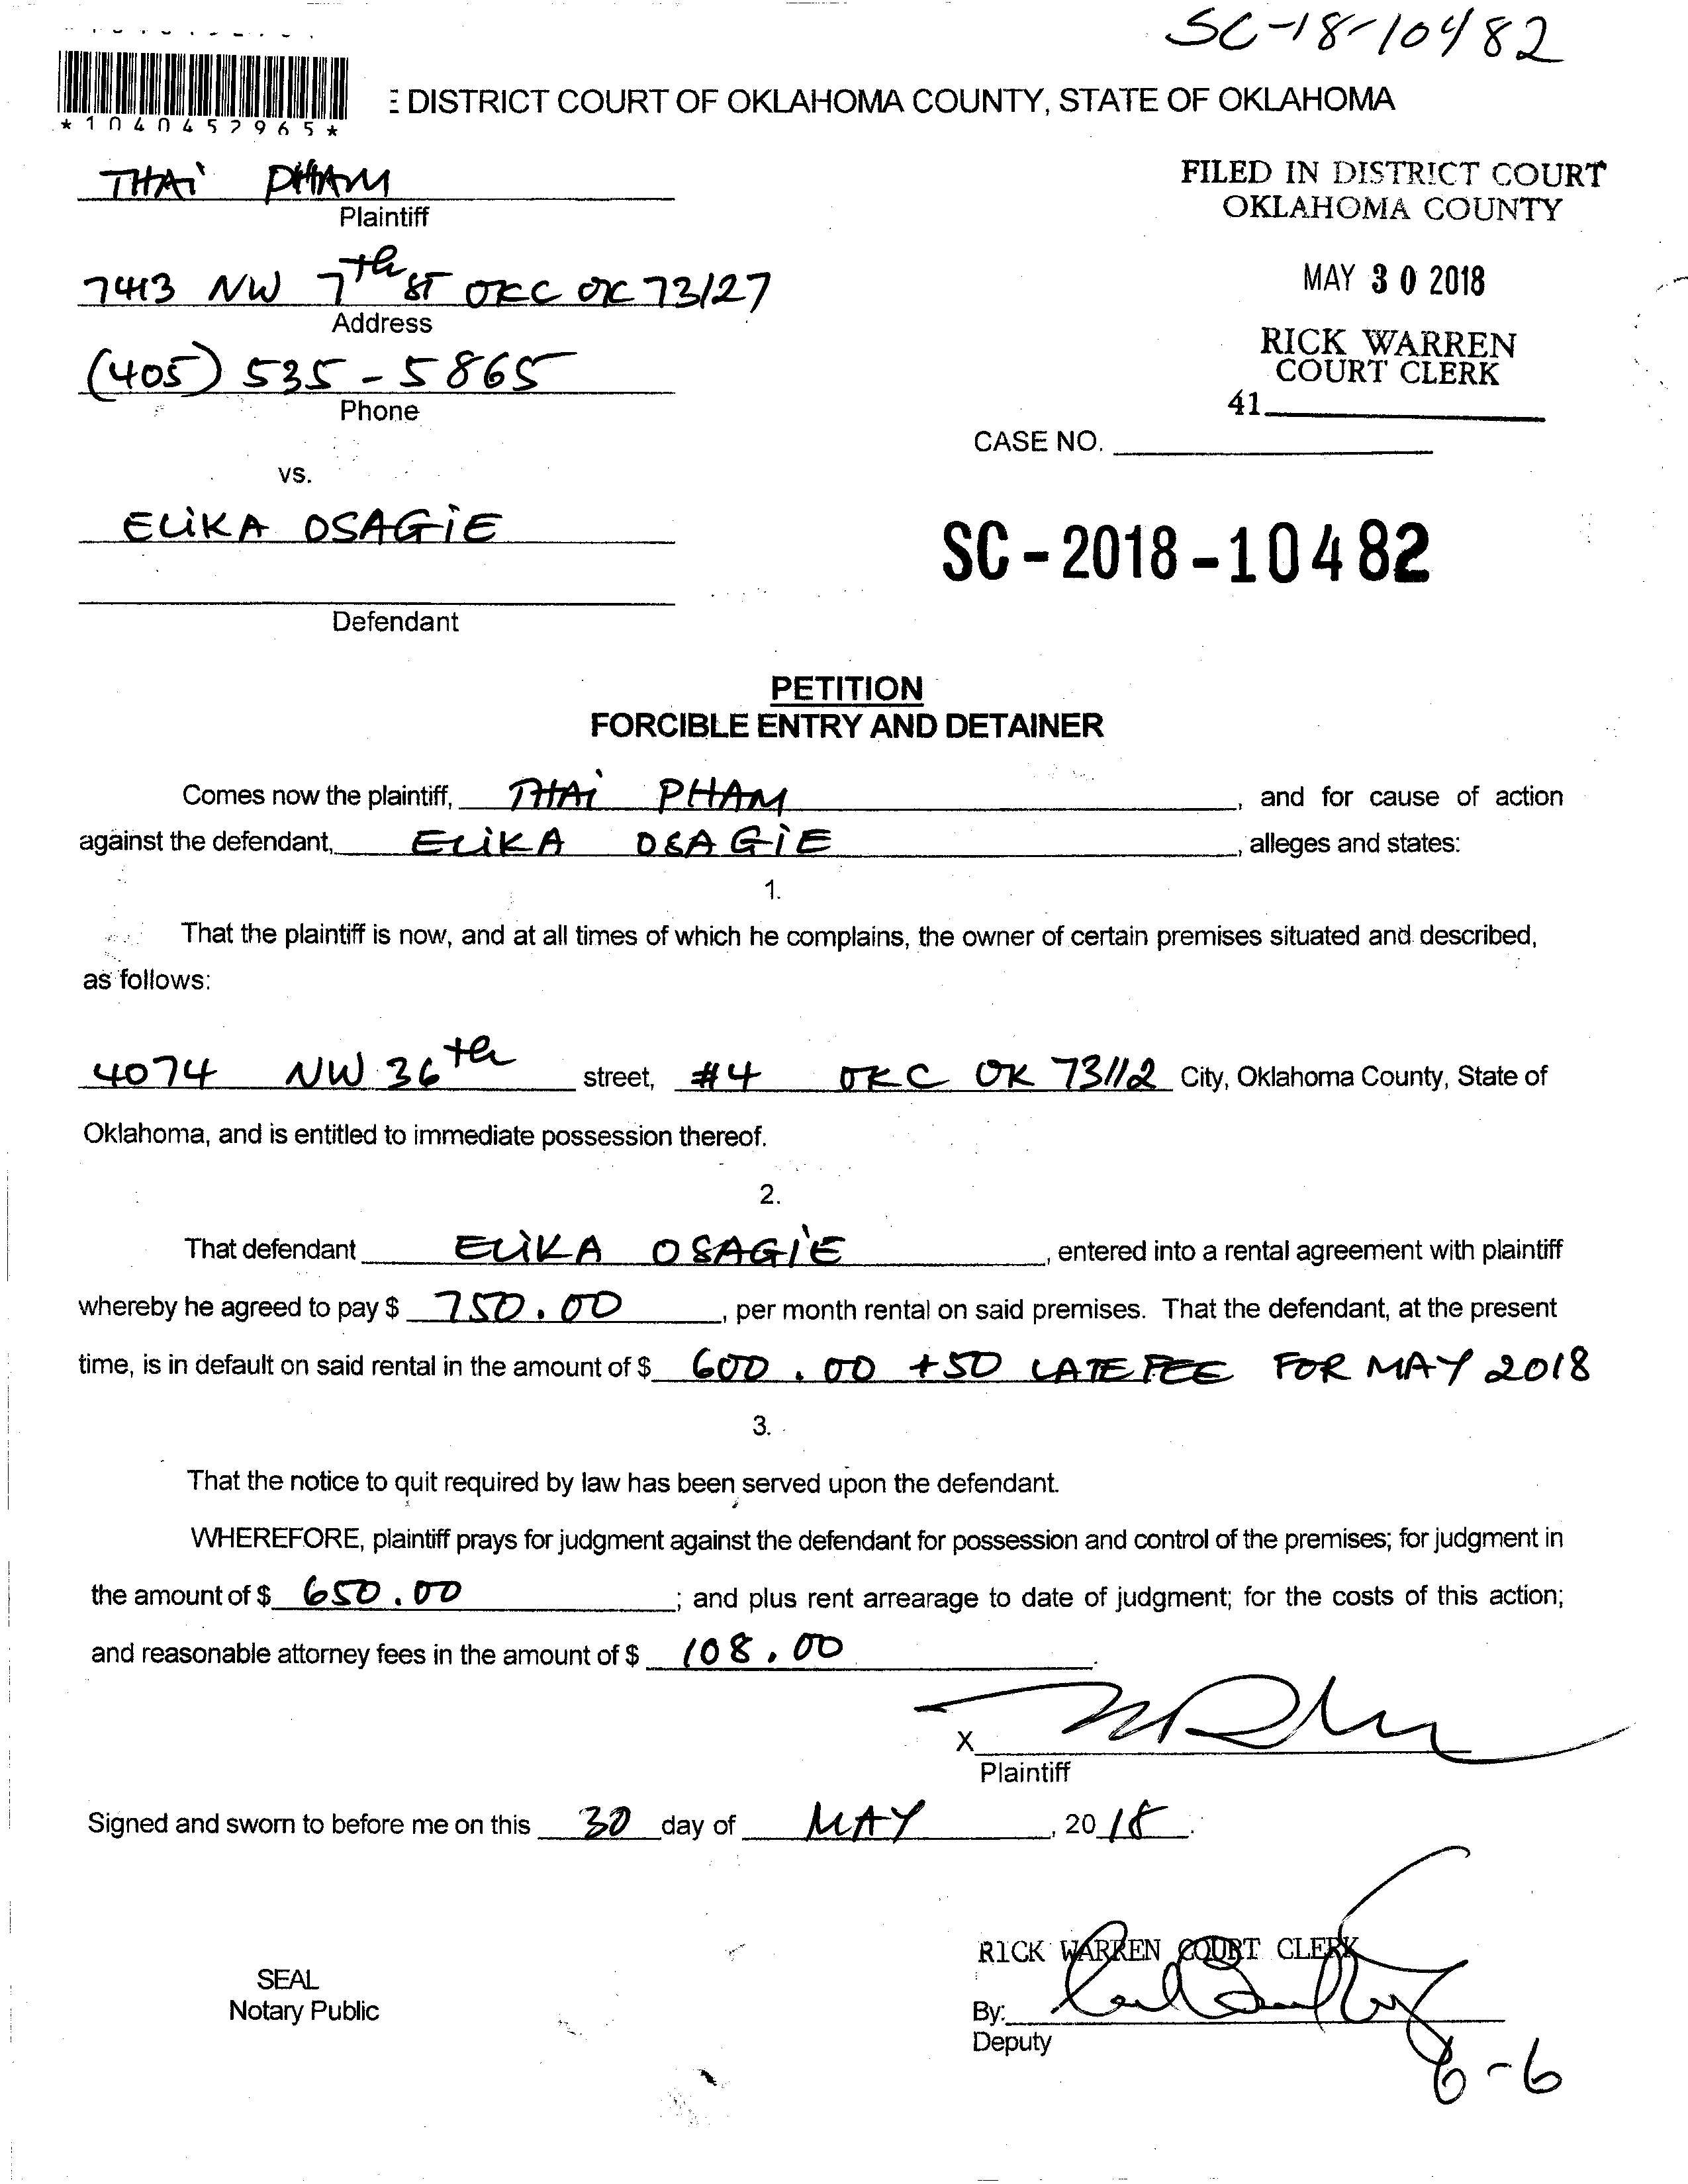 SC-18-10482
* 1 0 4 0 4 5 2 9 6 5 *
DISTRICT COURT OF OKLAHOMA COUNTY, STATE OF OKLAHOMA
THAI PHAM
Plaintiff
FILED IN DISTRICT COURT
OKLAHOMA COUNTY
7413 NW 7th ST OKC OK 73127
Address
MAY 30 2018
(405) 535-5865
Phone
RICK WARREN
COURT CLERK
41
CASE NO.
vs.
ELIKA OSAGIE
SC-2018-10482
Defendant
PETITION
FORCIBLE ENTRY AND DETAINER
Comes now the plaintiff, THAI PHAM, and for cause of action
against the defendant, ELIKA OSAGIE, alleges and states:
1.
That the plaintiff is now, and at all times of which he complains, the owner of certain premises situated and described,
as follows:
4074 NW 36th street, #4 OKC OK 73112 City, Oklahoma County, State of
Oklahoma, and is entitled to immediate possession thereof.
2.
That defendant ELIKA OSAGIE, entered into a rental agreement with plaintiff
whereby he agreed to pay $ 750.00, per month rental on said premises. That the defendant, at the present
time, is in default on said rental in the amount of $ 600.00 +50 LATE FEE FOR MAY 2018
3.
That the notice to quit required by law has been served upon the defendant.
WHEREFORE, plaintiff prays for judgment against the defendant for possession and control of the premises; for judgment in
the amount of $ 650.00; and plus rent arrearage to date of judgment; for the costs of this action;
and reasonable attorney fees in the amount of $ 108.00.
X
Plaintiff
Signed and sworn to before me on this 30 day of MAY, 2018.
RICK WARREN COURT CLERK
SEAL
Notary Public
By:
Deputy
6-6